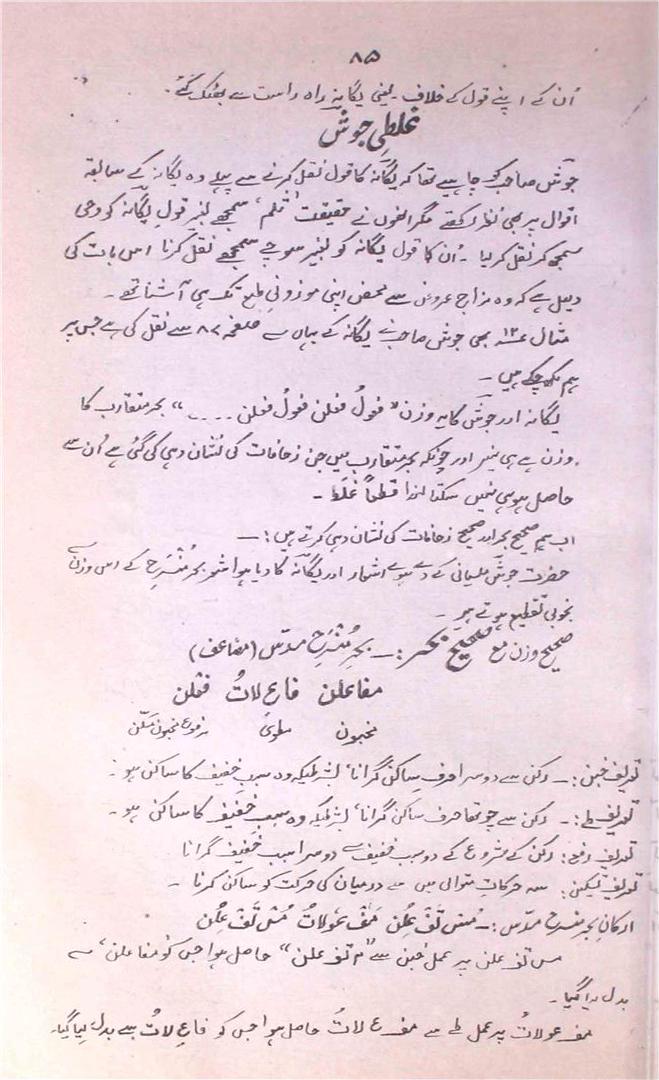 ۸۵
اُن کے اپنے قول کے خلاف۔ یعنی یگانہ راہ راست سے بھٹک گئے۔
غلطیِ جوش
جوش صاحب کو چاہیے تھا کہ یگانہ کا قول نقل کرنے سے پہلے وہ یگانہ کے سابقہ
اقوال پر بھی نظر رکھتے مگر انھوں نے حقیقت، سمجھے بغیر قولِ یگانہ کو وحی
سمجھ کر نقل کر لیا۔ اُن کا قول یگانہ کو بغیر سوچے سمجھے نقل کرنا اس بات کی
دلیل ہے کہ وہ مزاج عروض سے محض اپنی موزونیِ طبع تک ہی آشنا تھے۔
مثال ۱۲ بھی جوش صاحب نے یگانہ کے یہاں سے صفحہ ۸۲ سے نقل کی ہے جس پر
ہم لکھ چکے ہیں۔
یگانہ اور جوش کا یہ وزن "فعولُ فعلن فعولُ فعلن ۔۔۔۔" بحر متقارب کا
وزن ہے ہی نہیں اور چونکہ بحر متقارب میں جن زحافات کی نشان دہی کی گئی ہے اُن سے
حاصل ہو ہی نہیں سکتا لہٰذا قطعاً غلط۔
اب ہم صحیح بحر اور صحیح زحافات کی نشان دہی کرتے ہیں:۔
حضرت جوش ملسیانی کے دیے ہوئے اشعار اور یگانہ کا دیا ہوا شعر بحر مُنسَرِح کے اس وزن سے
بخوبی تقطیع ہوتے ہیں۔
صحیح وزن مع صحیح بحر:۔ بحرِ مُنسَرِح مسدّس (مضاعف)
مفاعلن فاع لاتُ فعلن
مخبون مطوی مرفوع مخبون مسکّن
تعریف خبن:۔ رکن سے دوسرا حرف ساکن گرانا، بشرطیکہ وہ سببِ خفیف کا ساکن ہو۔
تعریف طے:۔ رکن سے چوتھا حرف ساکن گرانا، بشرطیکہ وہ سببِ خفیف کا ساکن ہو۔
تعریف رفع: رکن کے شروع کے دو سبب خفیف سے دوسرا سبب خفیف گرانا
تعریف تسکین: سہ حرکاتِ متوالی میں سے درمیان کی حرکت کو ساکن کرنا۔
ارکانِ بحر منسرح مسدّس:۔ مُس تَف عِلُن مَف عُولاتُ مُس تَف عِلُن
مس تف علن پر عمل خبن سے "م تف علن" حاصل ہوا جس کو مفاعلن، سے
بدل لیا گیا۔
مف عولاتُ پر عمل طے سے مف ع لاتُ حاصل ہوا جس کو فاع لاتُ سے بدل لیا گیا۔